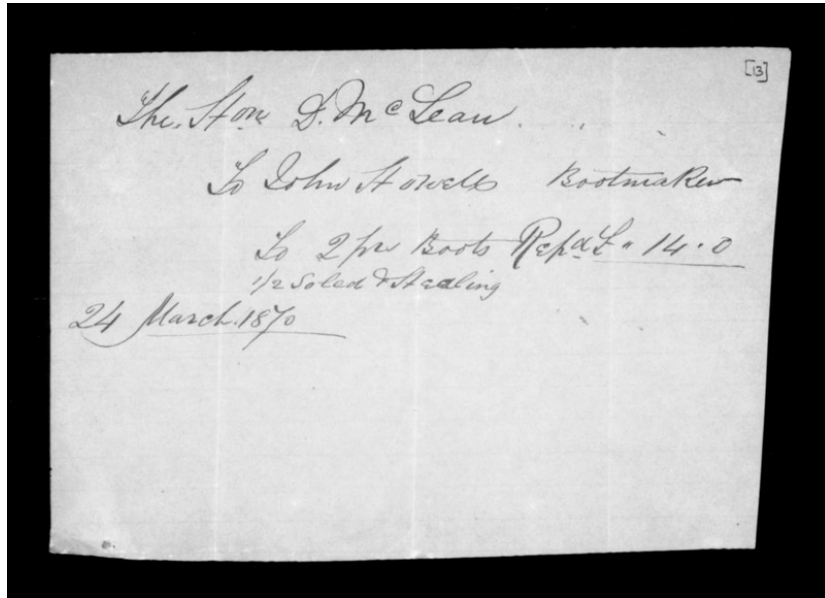 [13]
The Hon D. McLean
To John Howells Bootmaker
To 2 prs Boots Repd £ " 14 . 0
1/2 Soled & Heeling
24 March 1870